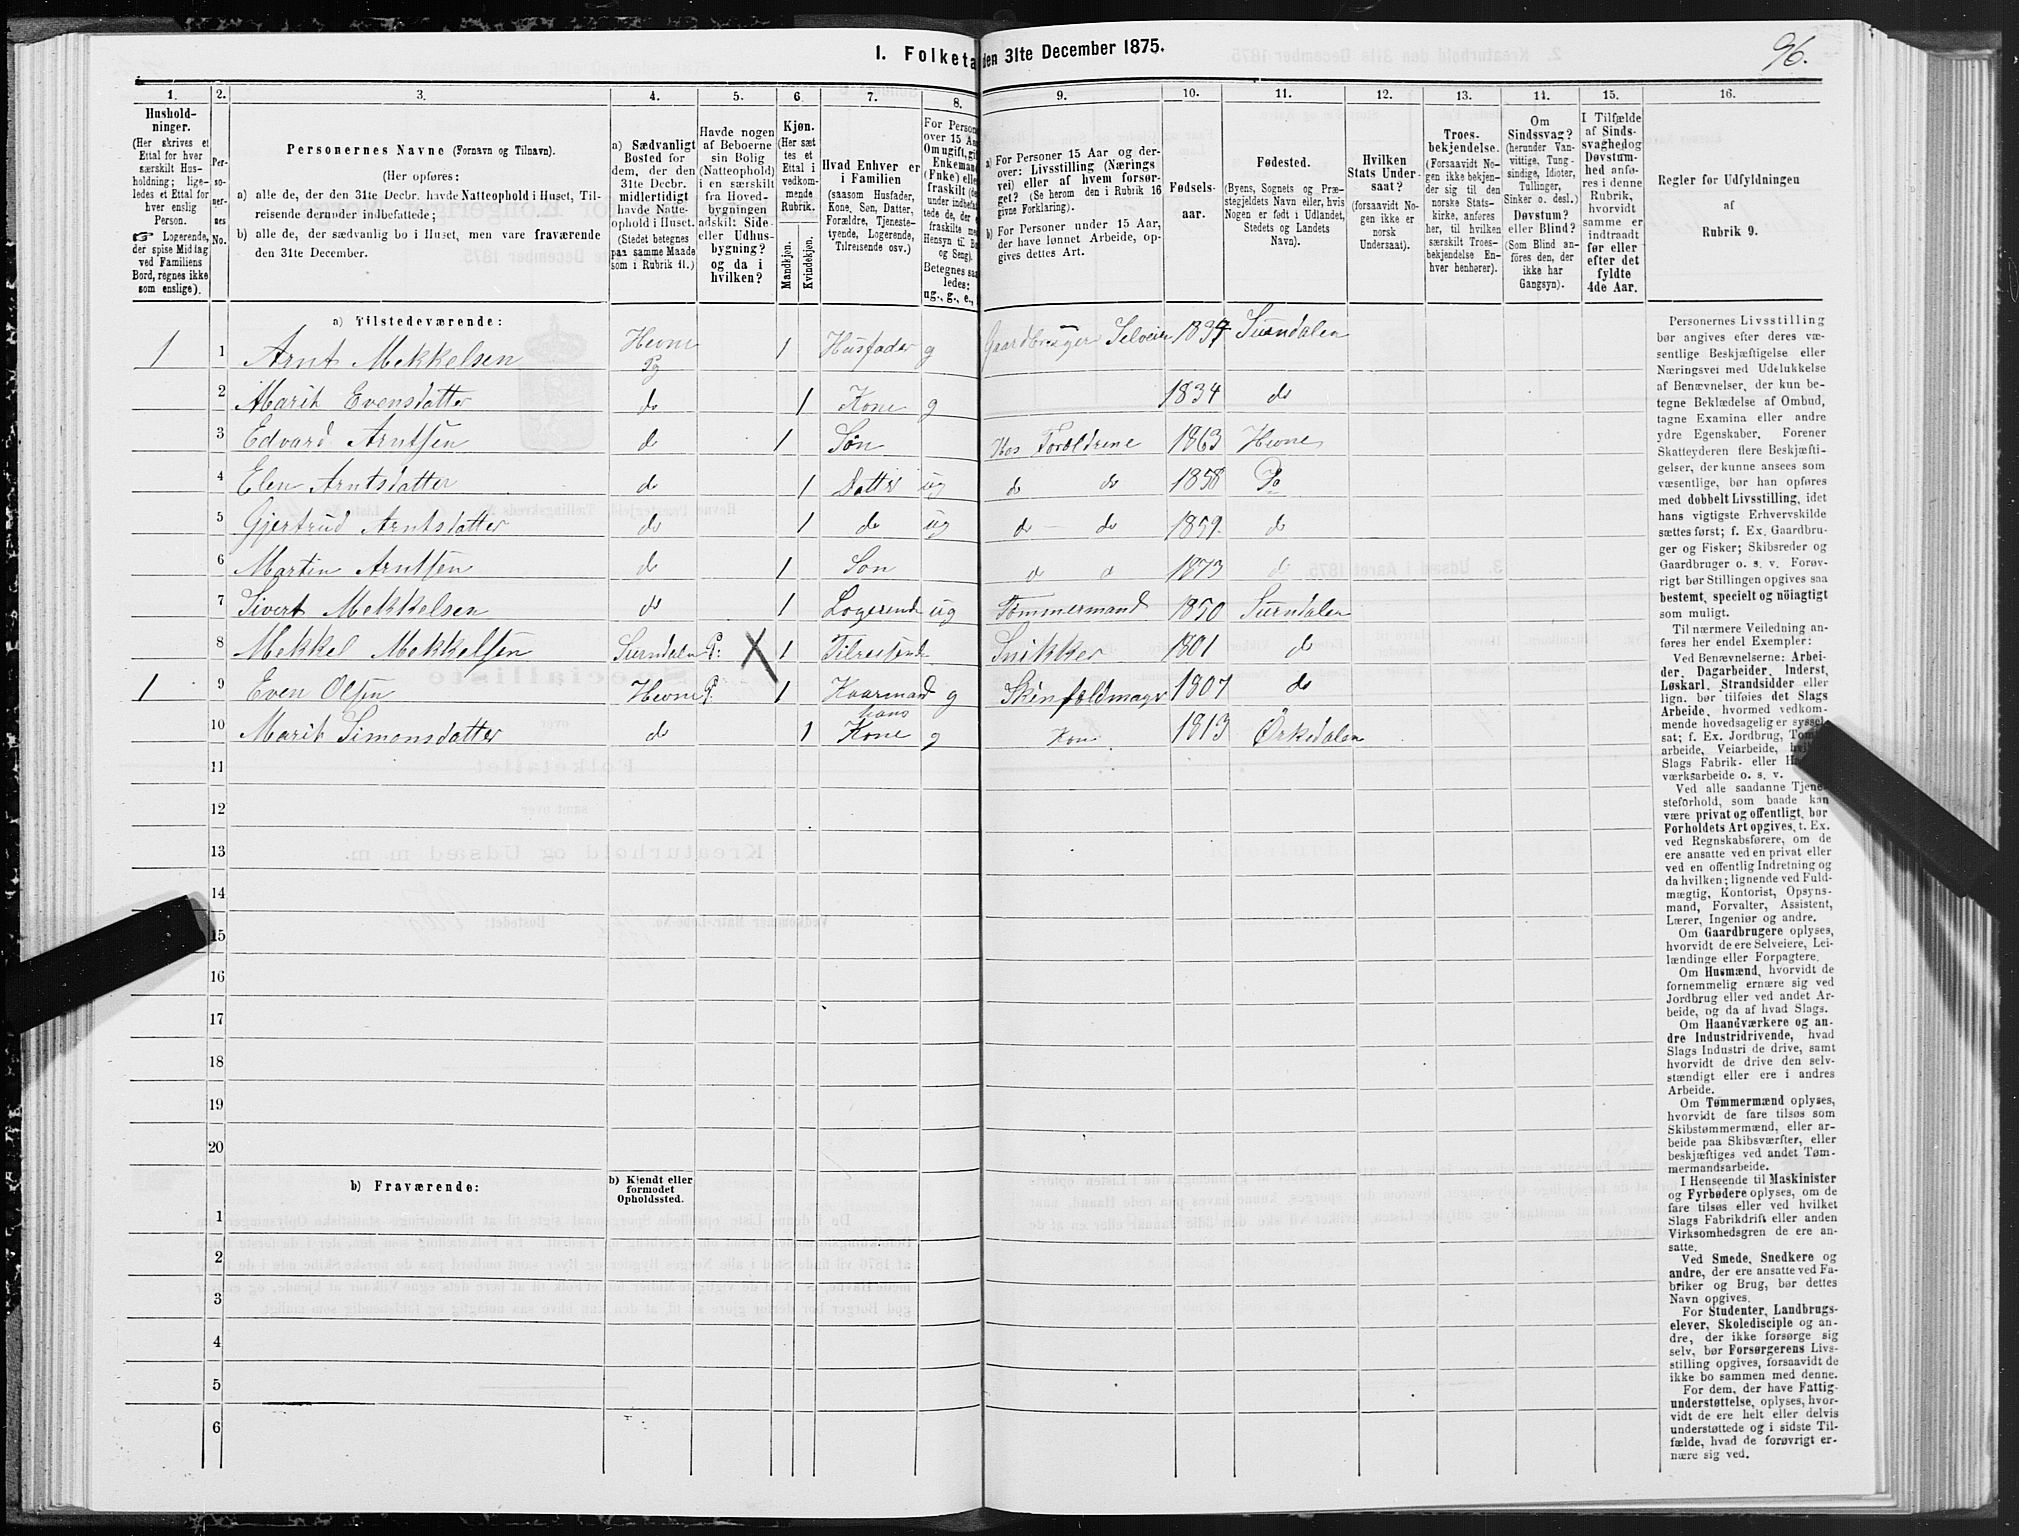 I. Folketa den 31te December 1875.
96.
1. 2. 3. 4. 5. 6. 7. 8. 9. 10. 11. 12. 13. 14. 15. 16.
Hushold-
ninger.
(Her skrives et
Ettal for hver
særskilt Hus-
holdning; lige-
ledes et Ettal for
hver enslig
Person.
☞ Logerende,
der spise Middag
ved Familiens
Bord, regnes ikke
som enslige).
Per-
so-
ner-
nes
No.
Personernes Navne (Fornavn og Tilnavn).
(Her opføres:
a) alle de, der den 31te Decbr. havde Natteophold i Huset, Til-
reisende derunder indbefattede;
b) alle de, der sædvanlig bo i Huset, men vare fraværende
den 31te December.
a) Sædvanligt
Bosted for
dem, der den
31te Decbr.
midlertidigt
havde Natte-
ophold i Huset.
(Stedet betegnes
paa samme Maade
som i Rubrik 11.)
Havde nogen
af Beboerne
sin Bolig
(Natteophold)
i en særskilt
fra Hoved-
bygningen
adskilt Side-
eller Udhus-
bygning?
og da i
hvilken?
Kjøn.
(Her sæt
tes et
Ettal i
vedkom-
mende
Rubrik.
Mandkjøn.
Kvindekjøn.
Hvad Enhver er
i Familien
(saasom Husfader,
Kone, Søn, Datter,
Forældre, Tjeneste-
tyende, Logerende,
Tilreisende osv.)
For Person
over 15 Aa
Om ugift, gif
Enkemand
(Fnke) elle
fraskilt (de
under indbefat
tede de, der e
fraskilte med
Hensyn til Bo
og Seng).
Betegnes saa
ledes:
ug., g., e.,
a) For Personer 15 Aar og der-
over: Livsstilling (Nærings
vei) eller af hvem forsør-
get? (Se herom den i Rubrik 16
givne Forklaring).
b) For Personer under 15 Aar,
der have lønnet Arbeide, op-
gives dettes Art.
Fødsels-
aar.
Fødested.
(Byens, Sognets og Præ-
stegjeldets Navn eller, hvis
Nogen er født i Udlandet,
Stedets og Landets
Navn).
Hvilken
Stats Under-
saat?
(forsaavidt No-
gen ikke er
norsk
Undersaat).
Troes-
bekjendelse.
(Forsaavidt No-
gen ikke bekjen-
der sig til den
norske Stats-
kirke, anføres
her, til hvilken
særskilt Troes-
bekjendelse En-
hver henhører).
Om
Sindssvag?
(herunder Van-
vittige, Tung-
sindige, Idioter,
Tullinger,
Sinker o. desl.)
Døvstum?
eller Blind?
(Som Blind an-
føres den, der
ikke har
Gangsyn).
I Tilfælde
af Sinds-
svaghed og
Døvstum-
hed anfø-
res i denne
Rubrik,
hvorvidt
samme er
indtraadt
før eller
efter det
fyldte
4de Aar.
Regler for Udfyldningen
af
Rubrik 9.
a) Tilstedeværende:
1 1 Arnt Mekkelsen Hevne Pg 1 Husfader g Gaardbruger Selveier 1837 Surndalen
2 Marit Evensdatter do 1 Kone g 1834 do
3 Edvard Arntsen do 1 Søn Hos Forældrene 1863 Hevne
4 Elen Arntsdatter do 1 Datter ug do do 1858 Do
5 Gjertrud Arntsdatter do 1 do ug do do 1859 do
6 Martin Arntsen do 1 Søn do do 1873 do
7 Sivert Mekkelsen do 1 Logerende ug Tømmermand 1850 Surndalen
8 Mekkel Mekkelsen Surndalen P: X 1 Tilreisende Snikker 1801 do
1 9 Even Olsen Hevne P. 1 Kaarmand g 1807 do
10 Marit Simonsdatter do 1 hans Kone g Kone 1813 Örkedalen
11
12
13
14
15
16
17
18
19
20
b) Fraværende:
b) Kjendt eller
formodet
Opholdssted.
1
2
3
4
5
6
Personernes Livsstilling
bør angives efter deres væ-
sentlige Beskjæftigelse eller
Næringsvei med Udelukkelse
af Benævnelser, der kun be-
tegne Beklædelse af Ombud,
tagne Examina eller andre
ydre Egenskaber. Forener
Skatteyderen flere Beskjæfti-
gelser, der kunne ansees som
væsentlige, bør han opføres
med dobbelt Livsstilling, idet
hans vigtigste Erhvervskilde
sættes først; f. Ex. Gaardbru-
ger og Fisker; Skibsreder og
Gaardbruger o. s. v. Forøv-
rigt bør Stillingen opgives saa
bestemt, specielt og nöiagtigt
som muligt.
Til nærmere Veiledning an-
føres her endel Exempler:
Ved Benævnelserne: Arbei-
der, Dagarbeider, Inderst,
Løskarl, Strandsidder eller
lign. bør tilføies det Slags
Arbeide, hvormed vedkom-
mende hovedsagelig er syssel-
sat; f. Ex. Jordbrug, Tom
arbeide, Veiarbeide, hvil
Slags Fabrik- eller Ha
værksarbeide o. s. v.
Ved alle saadanne Tjene-
steforhold, som baade kan
være privat og offentligt, bør
Forholdets Art opgives, t. Ex.
ved Regnskabsførere, om de
ere ansatte ved en privat eller
ved en offentlig Indretning og
da hvilken; lignende ved Fuld-
mægtig, Kontorist, Opsyns-
mand, Forvalter, Assistent,
Lærer, Ingeniør og andre.
Om Gaardbrugere oplyses,
hvorvidt de ere Selveiere, Lei-
lændinge eller Forpagtere.
Om Husmænd, hvorvidt de
fornemmelig ernære sig ved
Jordbrug eller ved andet Ar-
beide, og da af hvad Slags.
Om Haandværkere og an-
dre Industridrivende, hvad
Slags Industri de drive, samt
hvorvidt de drive den selv-
stændigt eller ere i andres
Arbeide.
Om Tømmermænd oplyses,
hvorvidt de fare tilsøs som
Skibstømmermænd, eller ar-
beide paa Skibsværfter, eller
beskjæftiges ved andet Tøm-
mermandsarbeide.
I Henseende til Maskinister
og Fyrbødere oplyses, om de
fare tilsøs eller ved hvilket
Slags Fabrikdrift eller anden
Virksomhedsgren de ere an-
satte.
Ved Smede, Snedkere og
andre, der ere ansatte ved Fa-
briker og Brug, bør dettes
Navn opgives.
For Studenter, Landbrugs-
elever, Skoledisciple og an-
dre, der ikke forsørge sig
selv, bør Forsørgerens Livs-
stilling opgives, forsaavidt de
ikke bo sammen med denne.
For dem, der have Fattig-
understøttelse, oplyses, hvor-
vidt de ere helt eller delvis
understøttede og i sidste Til-
fælde, hvad de forøvrigt er-
nære sig ved.